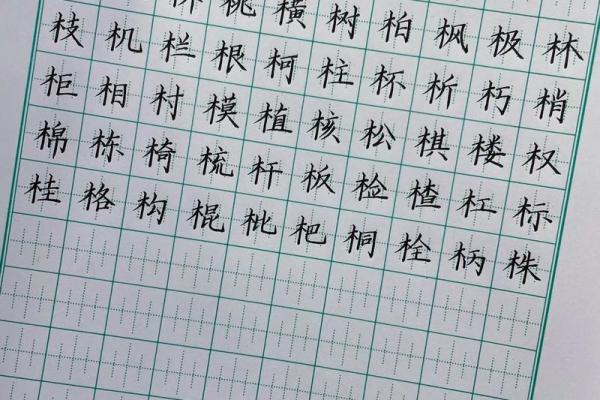 桃横树柏枫极林
枝机栏根柯柱杯析朽梢
柜相村模植核松棋楼权
棉栋椅梳杆板检楂杠标
桂格构棍枇杷桐栓柄株